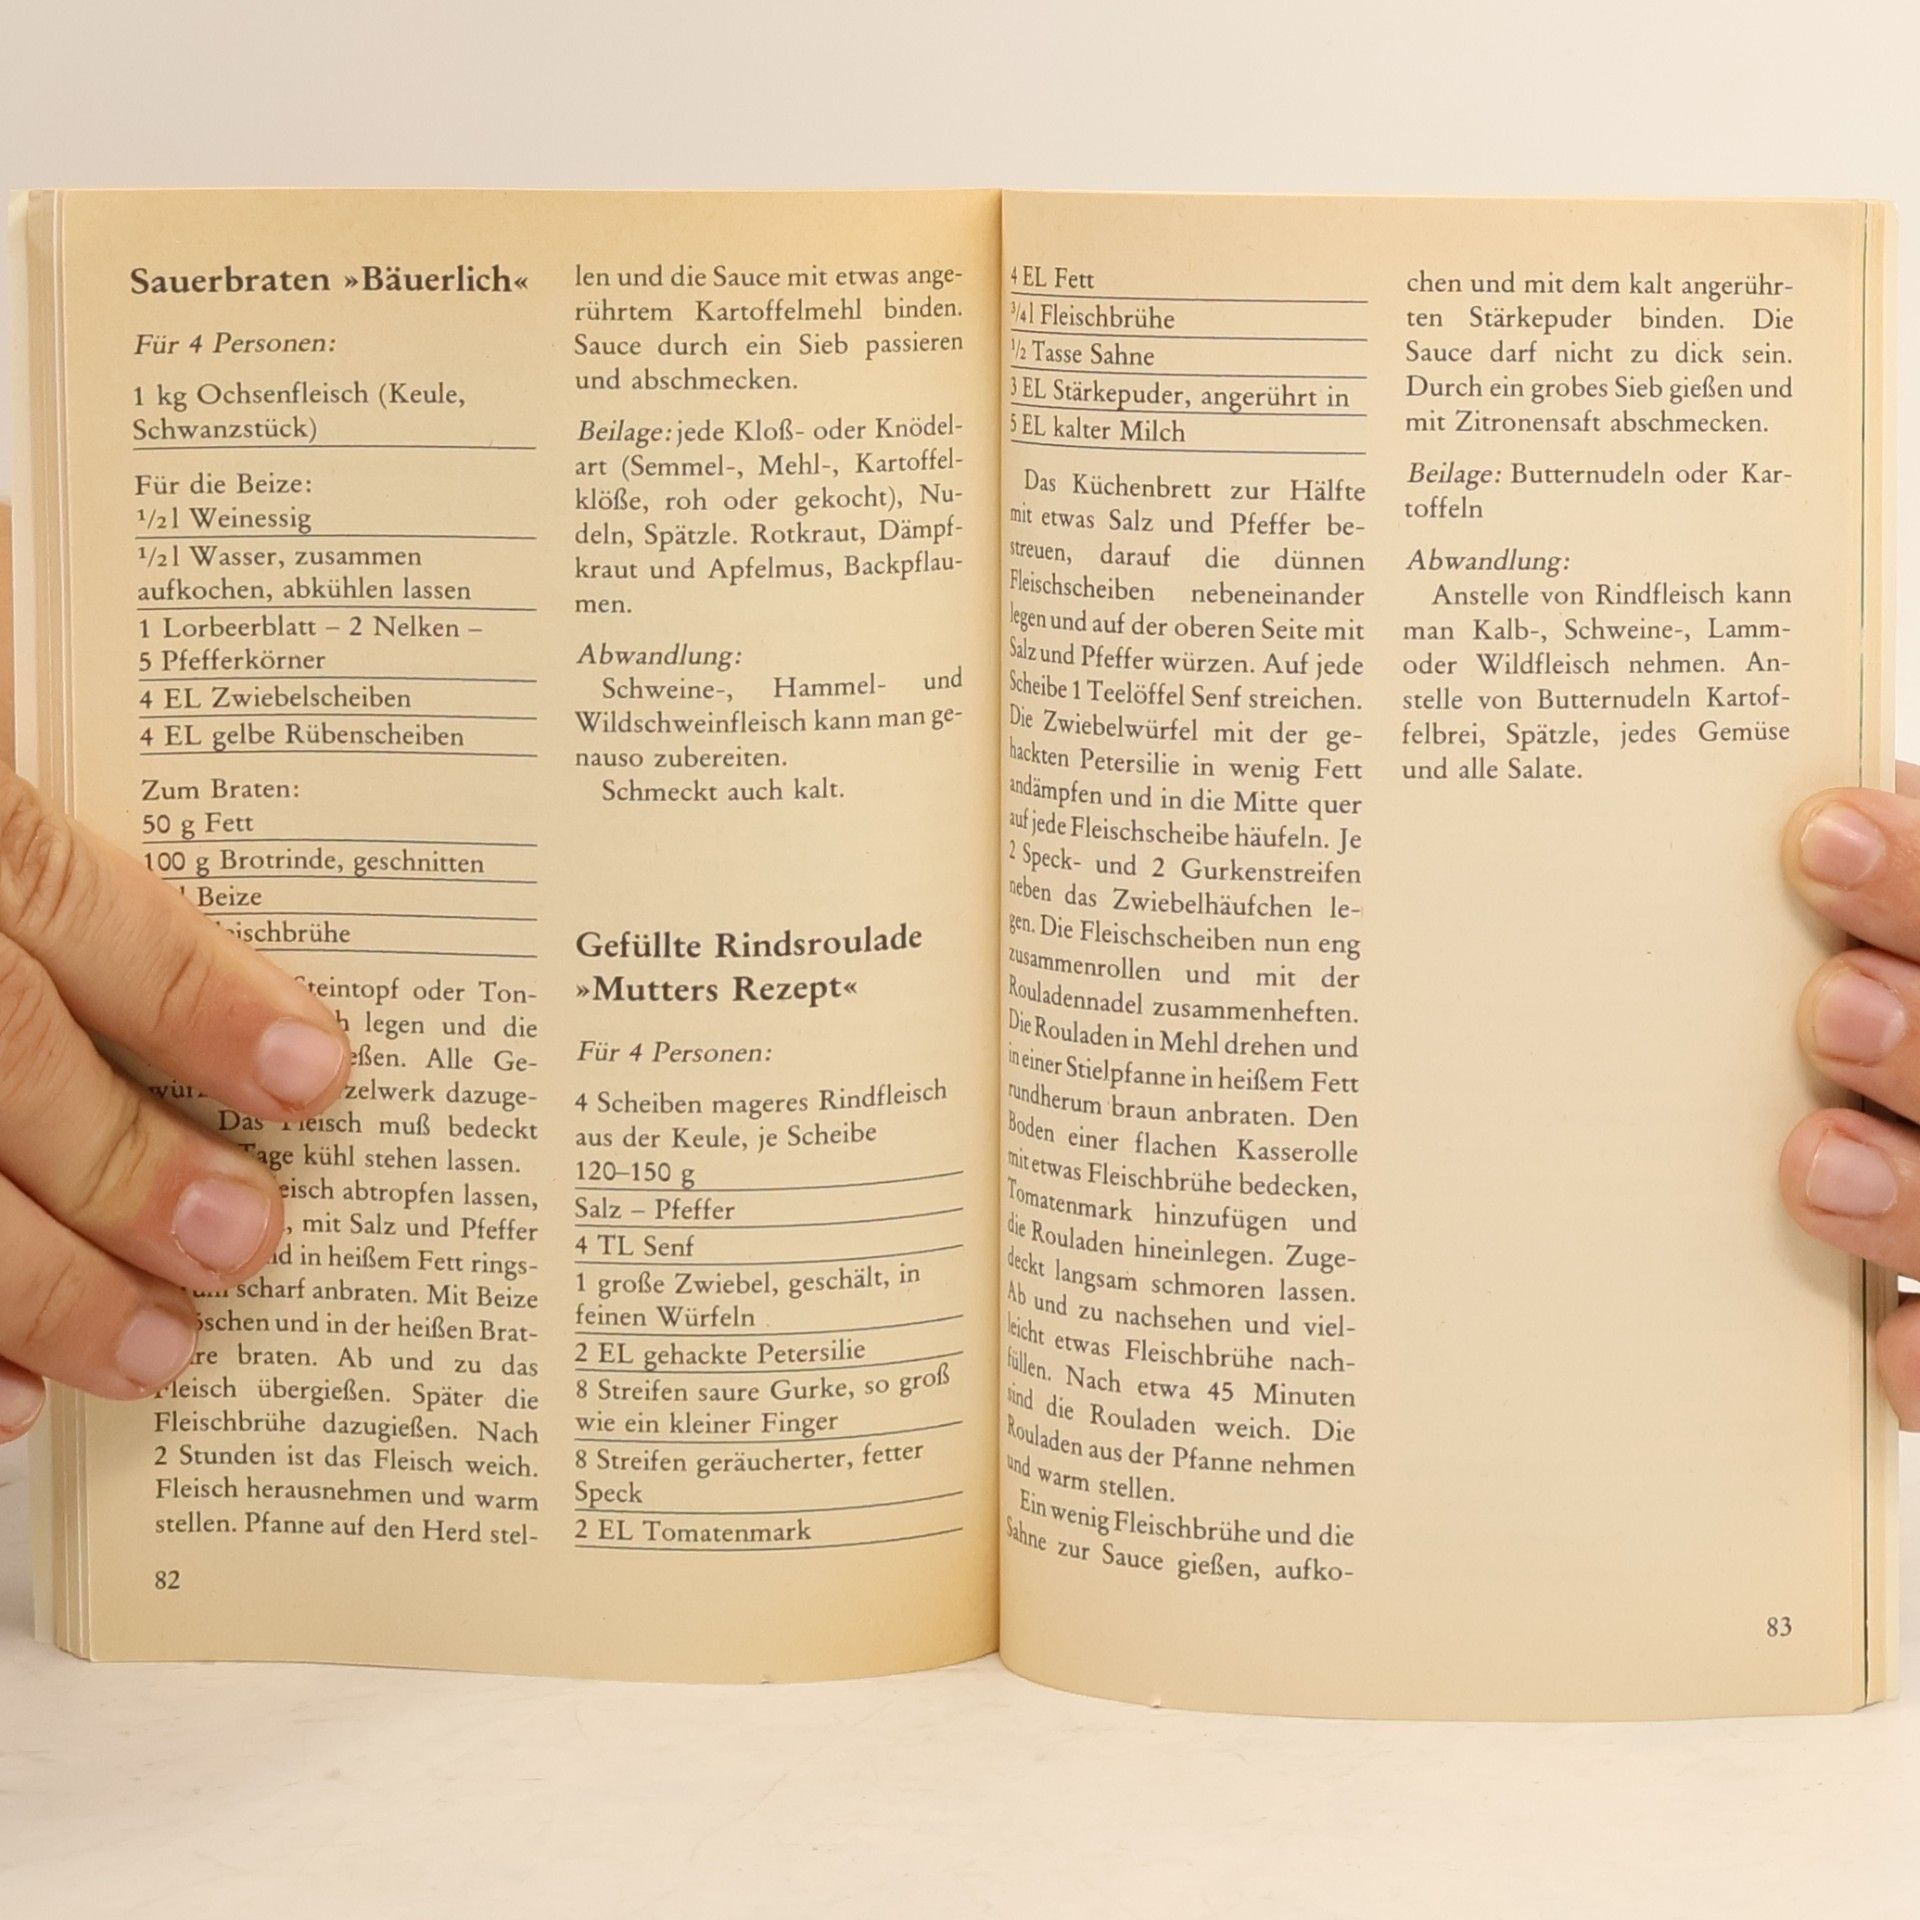 Sauerbraten »Bäuerlich«
Für 4 Personen:
1 kg Ochsenfleisch (Keule,
Schwanzstück)
Für die Beize:
½ l Weinessig
½ l Wasser, zusammen
aufkochen, abkühlen lassen
1 Lorbeerblatt – 2 Nelken –
5 Pfefferkörner
4 EL Zwiebelscheiben
4 EL gelbe Rübenscheiben
Zum Braten:
50 g Fett
100 g Brotrinde, geschnitten
l Beize
ischbrühe
Steintopf oder Ton-
h legen und die
eßen. Alle Ge-
würz zelwerk dazuge-
Das Fleisch muß bedeckt
Tage kühl stehen lassen.
eisch abtropfen lassen,
, mit Salz und Pfeffer
nd in heißem Fett rings-
um scharf anbraten. Mit Beize
öschen und in der heißen Brat-
re braten. Ab und zu das
Fleisch übergießen. Später die
Fleischbrühe dazugießen. Nach
2 Stunden ist das Fleisch weich.
Fleisch herausnehmen und warm
stellen. Pfanne auf den Herd stel-
82
len und die Sauce mit etwas ange-
rührtem Kartoffelmehl binden.
Sauce durch ein Sieb passieren
und abschmecken.
Beilage: jede Kloß- oder Knödel-
art (Semmel-, Mehl-, Kartoffel-
klöße, roh oder gekocht), Nu-
deln, Spätzle. Rotkraut, Dämpf-
kraut und Apfelmus, Backpflau-
men.
Abwandlung:
Schweine-, Hammel- und
Wildschweinfleisch kann man ge-
nauso zubereiten.
Schmeckt auch kalt.
Gefüllte Rindsroulade
»Mutters Rezept«
Für 4 Personen:
4 Scheiben mageres Rindfleisch
aus der Keule, je Scheibe
120–150 g
Salz – Pfeffer
4 TL Senf
1 große Zwiebel, geschält, in
feinen Würfeln
2 EL gehackte Petersilie
8 Streifen saure Gurke, so groß
wie ein kleiner Finger
8 Streifen geräucherter, fetter
Speck
2 EL Tomatenmark
4 EL Fett
¾ l Fleischbrühe
½ Tasse Sahne
3 EL Stärkepuder, angerührt in
5 EL kalter Milch
Das Küchenbrett zur Hälfte
mit etwas Salz und Pfeffer be-
streuen, darauf die dünnen
Fleischscheiben nebeneinander
legen und auf der oberen Seite mit
Salz und Pfeffer würzen. Auf jede
Scheibe 1 Teelöffel Senf streichen.
Die Zwiebelwürfel mit der ge-
hackten Petersilie in wenig Fett
andämpfen und in die Mitte quer
auf jede Fleischscheibe häufeln. Je
2 Speck- und 2 Gurkenstreifen
neben das Zwiebelhäufchen le-
gen. Die Fleischscheiben nun eng
zusammenrollen und mit der
Rouladennadel zusammenheften.
Die Rouladen in Mehl drehen und
in einer Stielpfanne in heißem Fett
rundherum braun anbraten. Den
Boden einer flachen Kasserolle
mit etwas Fleischbrühe bedecken,
Tomatenmark hinzufügen und
die Rouladen hineinlegen. Zuge-
deckt langsam schmoren lassen.
Ab und zu nachsehen und viel-
leicht etwas Fleischbrühe nach-
füllen. Nach etwa 45 Minuten
sind die Rouladen weich. Die
Rouladen aus der Pfanne nehmen
und warm stellen.
Ein wenig Fleischbrühe und die
Sahne zur Sauce gießen, aufko-
chen und mit dem kalt angerühr-
ten Stärkepuder binden. Die
Sauce darf nicht zu dick sein.
Durch ein grobes Sieb gießen und
mit Zitronensaft abschmecken.
Beilage: Butternudeln oder Kar-
toffeln
Abwandlung:
Anstelle von Rindfleisch kann
man Kalb-, Schweine-, Lamm-
oder Wildfleisch nehmen. An-
stelle von Butternudeln Kartof-
felbrei, Spätzle, jedes Gemüse
und alle Salate.
83